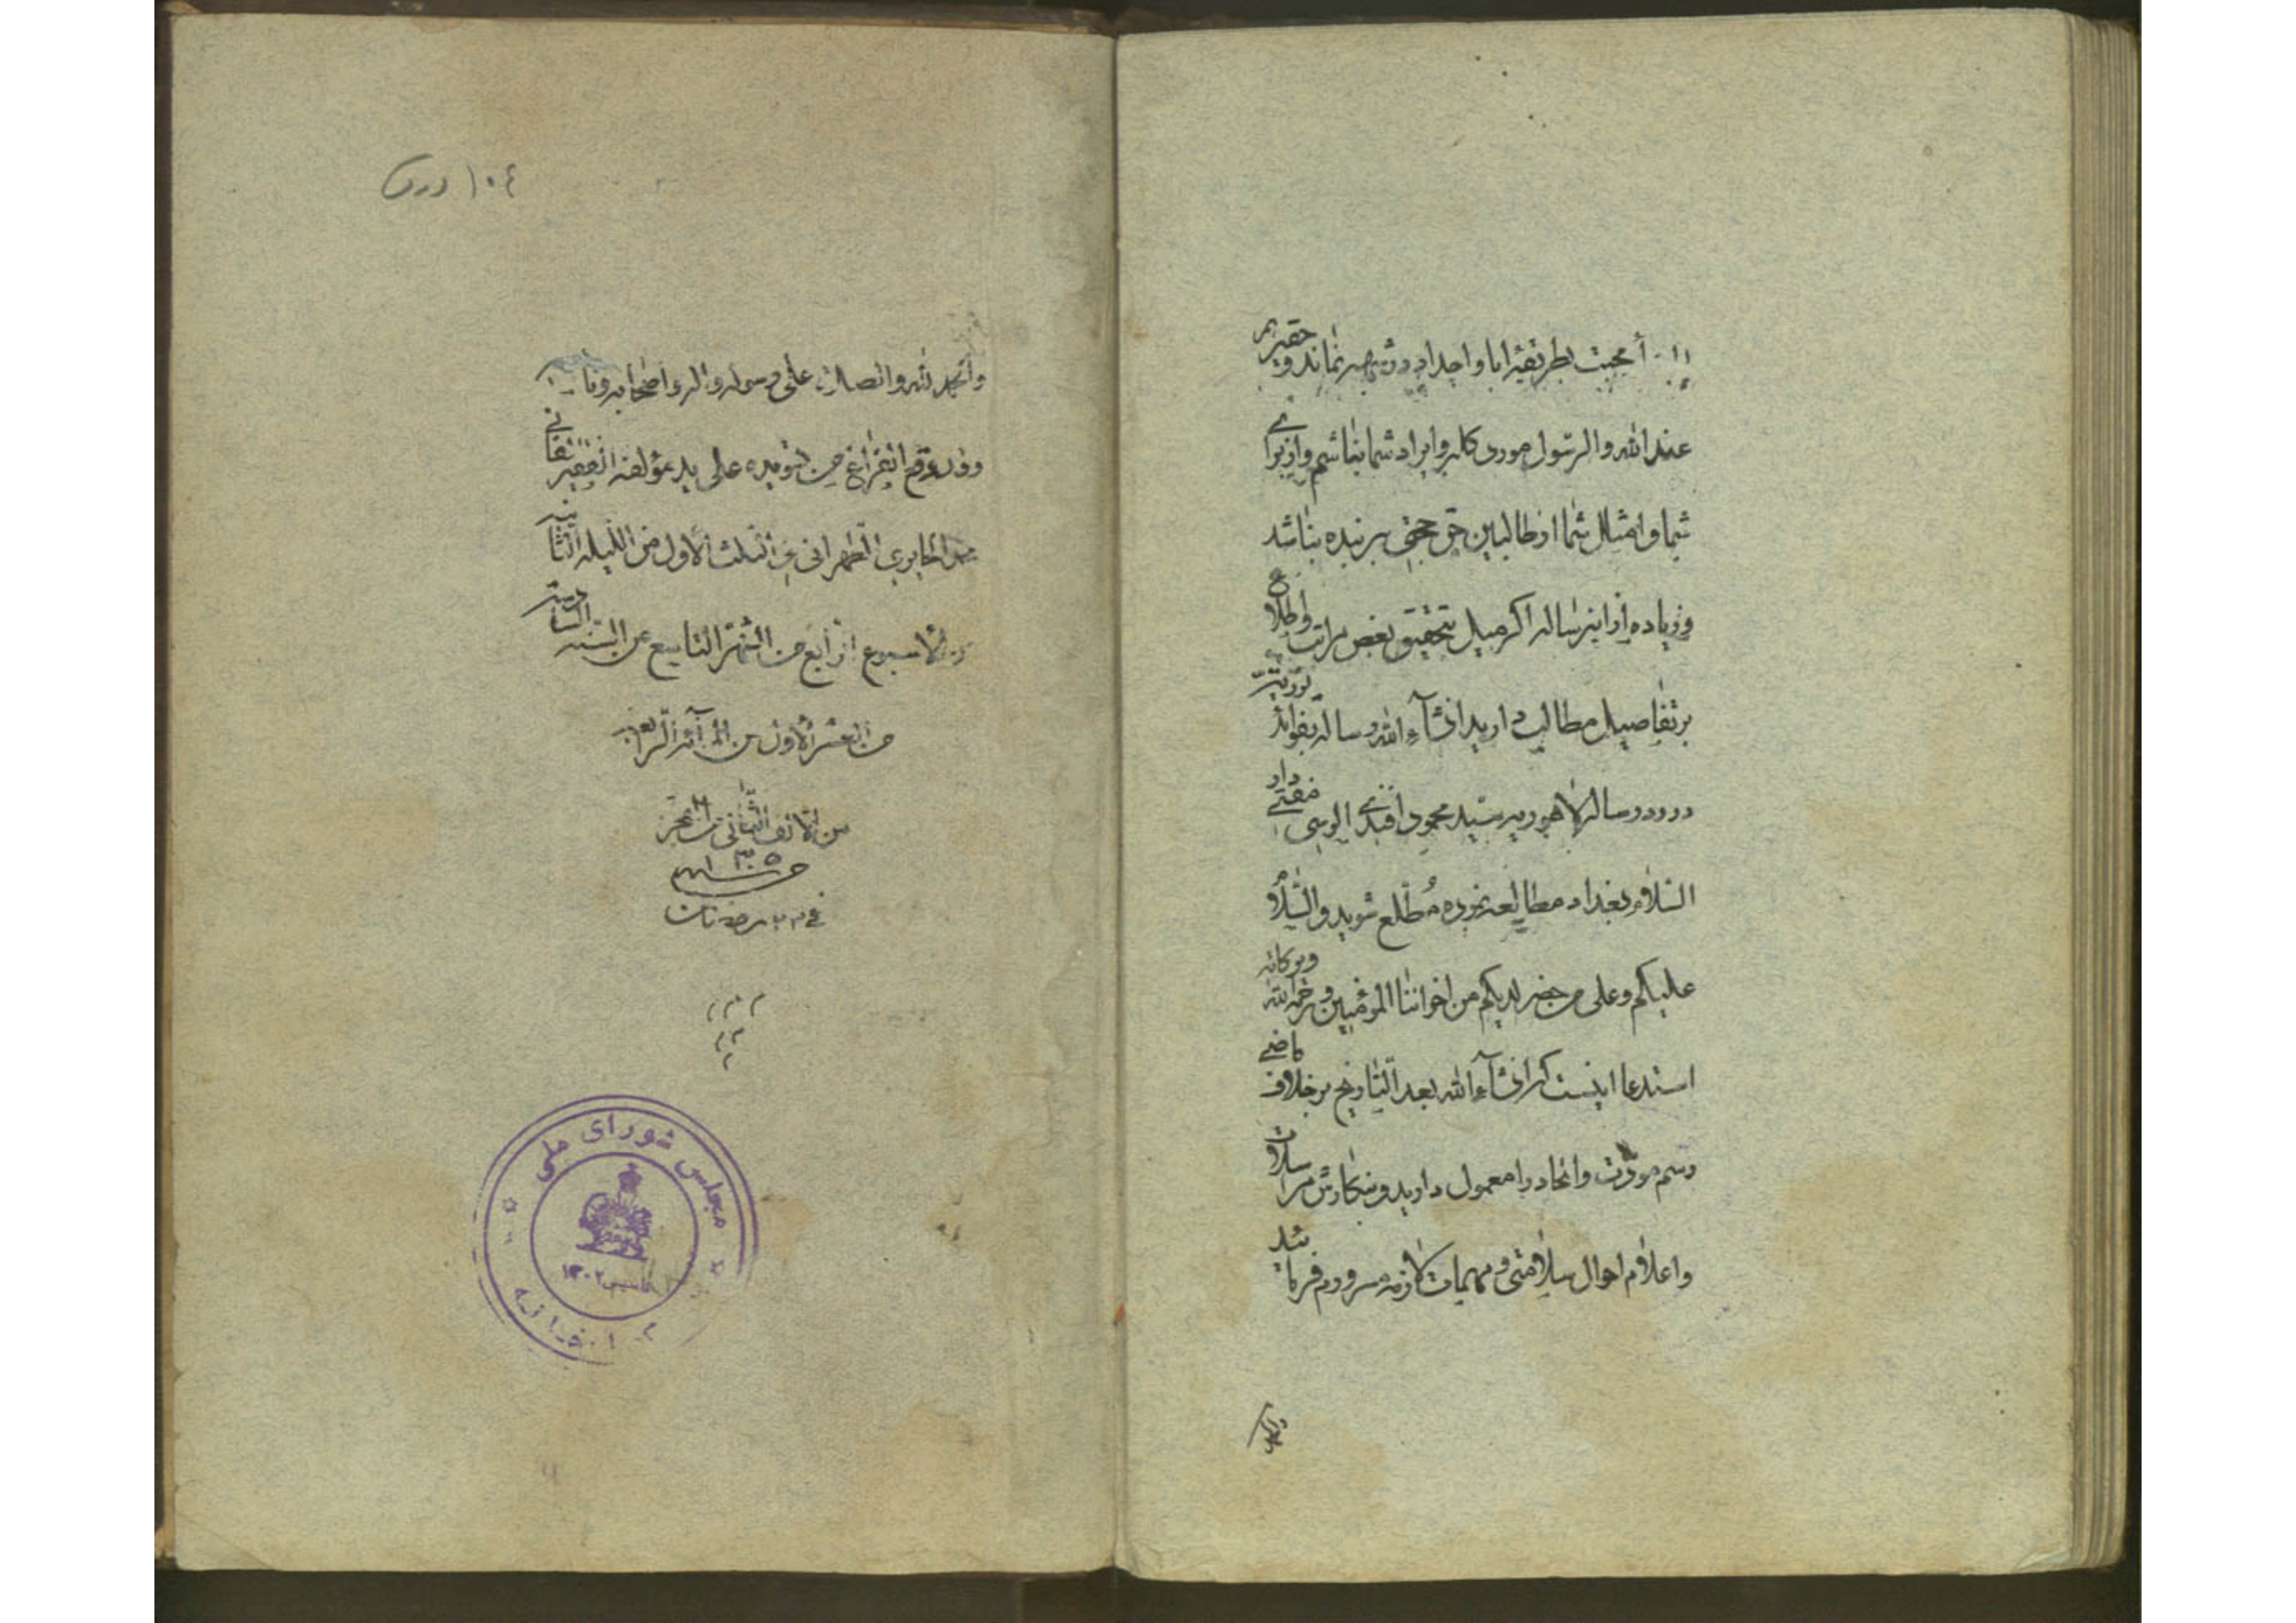 محبت بطریقۀ ابا و اجداد در شبهه نماند و حقیر هم
عند الله و الرسول مورد کله و ایراد شما نباشم و از برای
شما و امثال شما از طالبین حق حجتی بر بنده نباشد
و زیاده از این رساله اگر میل بتحقیق بعض مراتب و اطلاع
بر تفاصیل مطالب دارید انشآء الله رساله بفوائد
در رد رساله لاهوریه سید محمود افندی الوسی مفتی دار
السلام بغداد مطالعه نموده مُطّلع شوید والسّلام
علیکم و علی من حضر لدیکم من اخواننا المؤمنین و رحمة الله و برکاته
استدعا اینست که انشآء الله بعد التاریخ بر خلاف ماضی
رسم مودّت و اتحاد را معمول دارید و بنگارش مراسلات
و اعلام احوال سلامتی و مهمات لازمه مسرورم فرمائید
۱۰۴ ورق
والحمد لله والصلات علی رسوله واله واصحابه
وقد وقع الفراغ من تسویده علی ید مؤلفه الفقیر الفانی
الطهرانی فی الثلث الاول من اللیلة الثانیه
الاسبوع الرابع من الشهر التاسع من السنه السادسة
من العشر الاول من المآئة الرابعه
من الالف الثانی من الهجرة
۱۳۰۵
فی ۲۳ رمضان
مجلس شورای ملی
تاسیس ۱۳۰۲